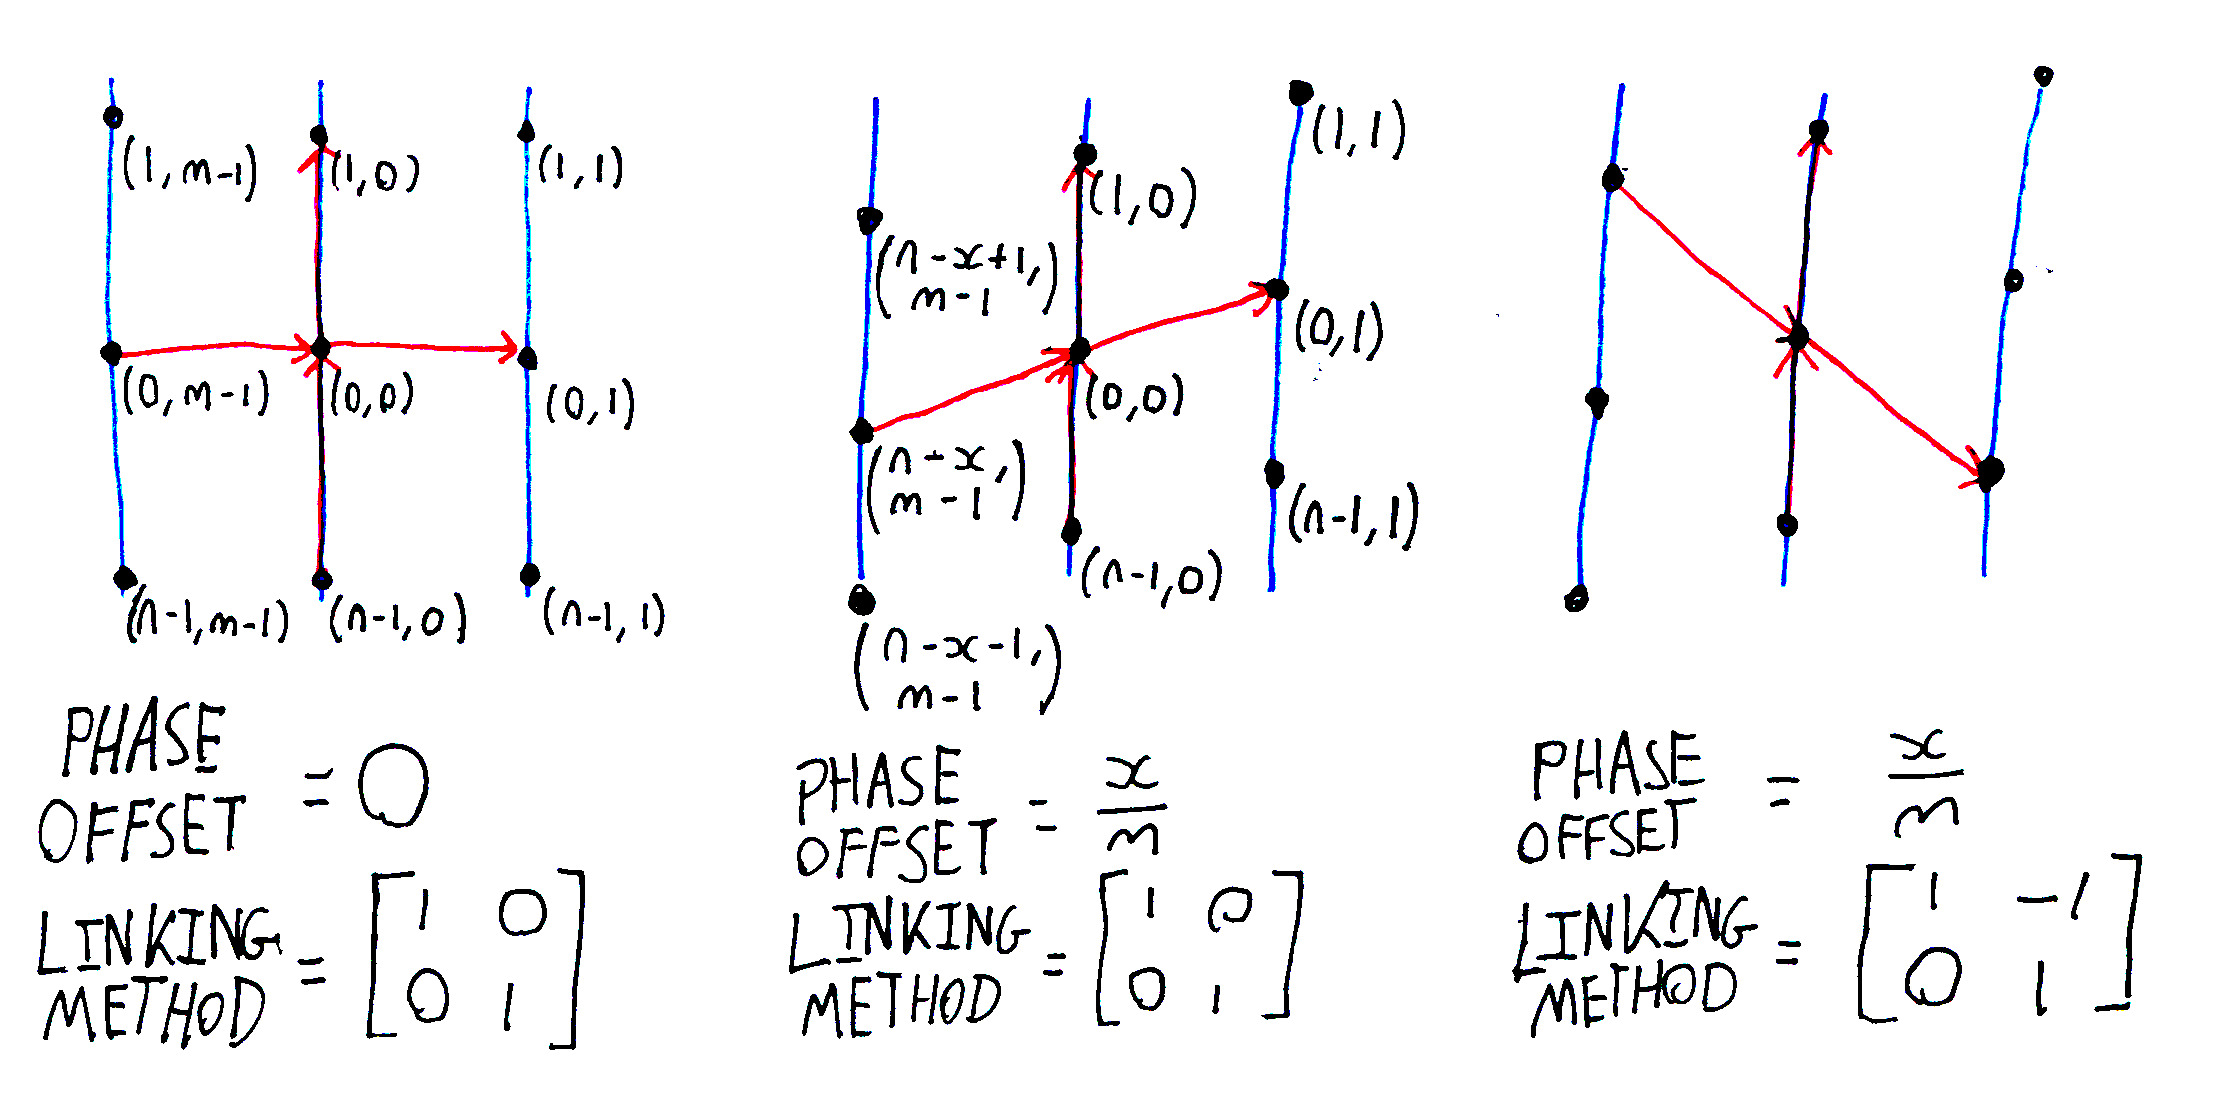 (1, m-1)
(1, 0)
(1, 1)
(0, m-1)
(0, 0)
(0, 1)
(n-1, m-1)
(n-1, 0)
(n-1, 1)
PHASE
OFFSET = 0
LINKING
METHOD = [1 0
0 1]
(1, 1)
(1, 0)
(n-x+1,
m-1)
(0, 1)
(0, 0)
(n-x,
m-1)
(n-1, 1)
(n-1, 0)
(n-x-1,
m-1)
PHASE
OFFSET = x/m
LINKING
METHOD = [1 0
0 1]
PHASE
OFFSET = x/m
LINKING
METHOD = [1 -1
0 1]